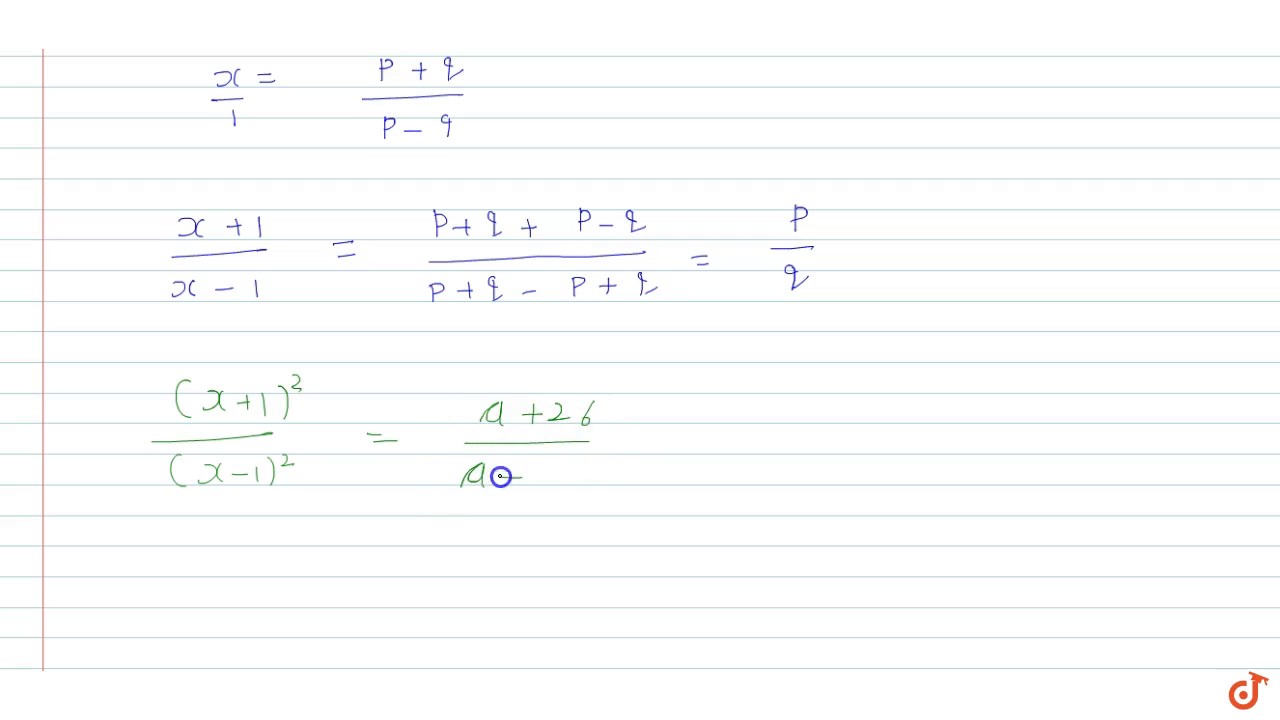 x/1 = (p + q)/(p - q)
(x + 1)/(x - 1) = (p + q + p - q)/(p + q - p + q) = p/q
(x + 1)²/(x - 1)² = (a + 2b)/(a -